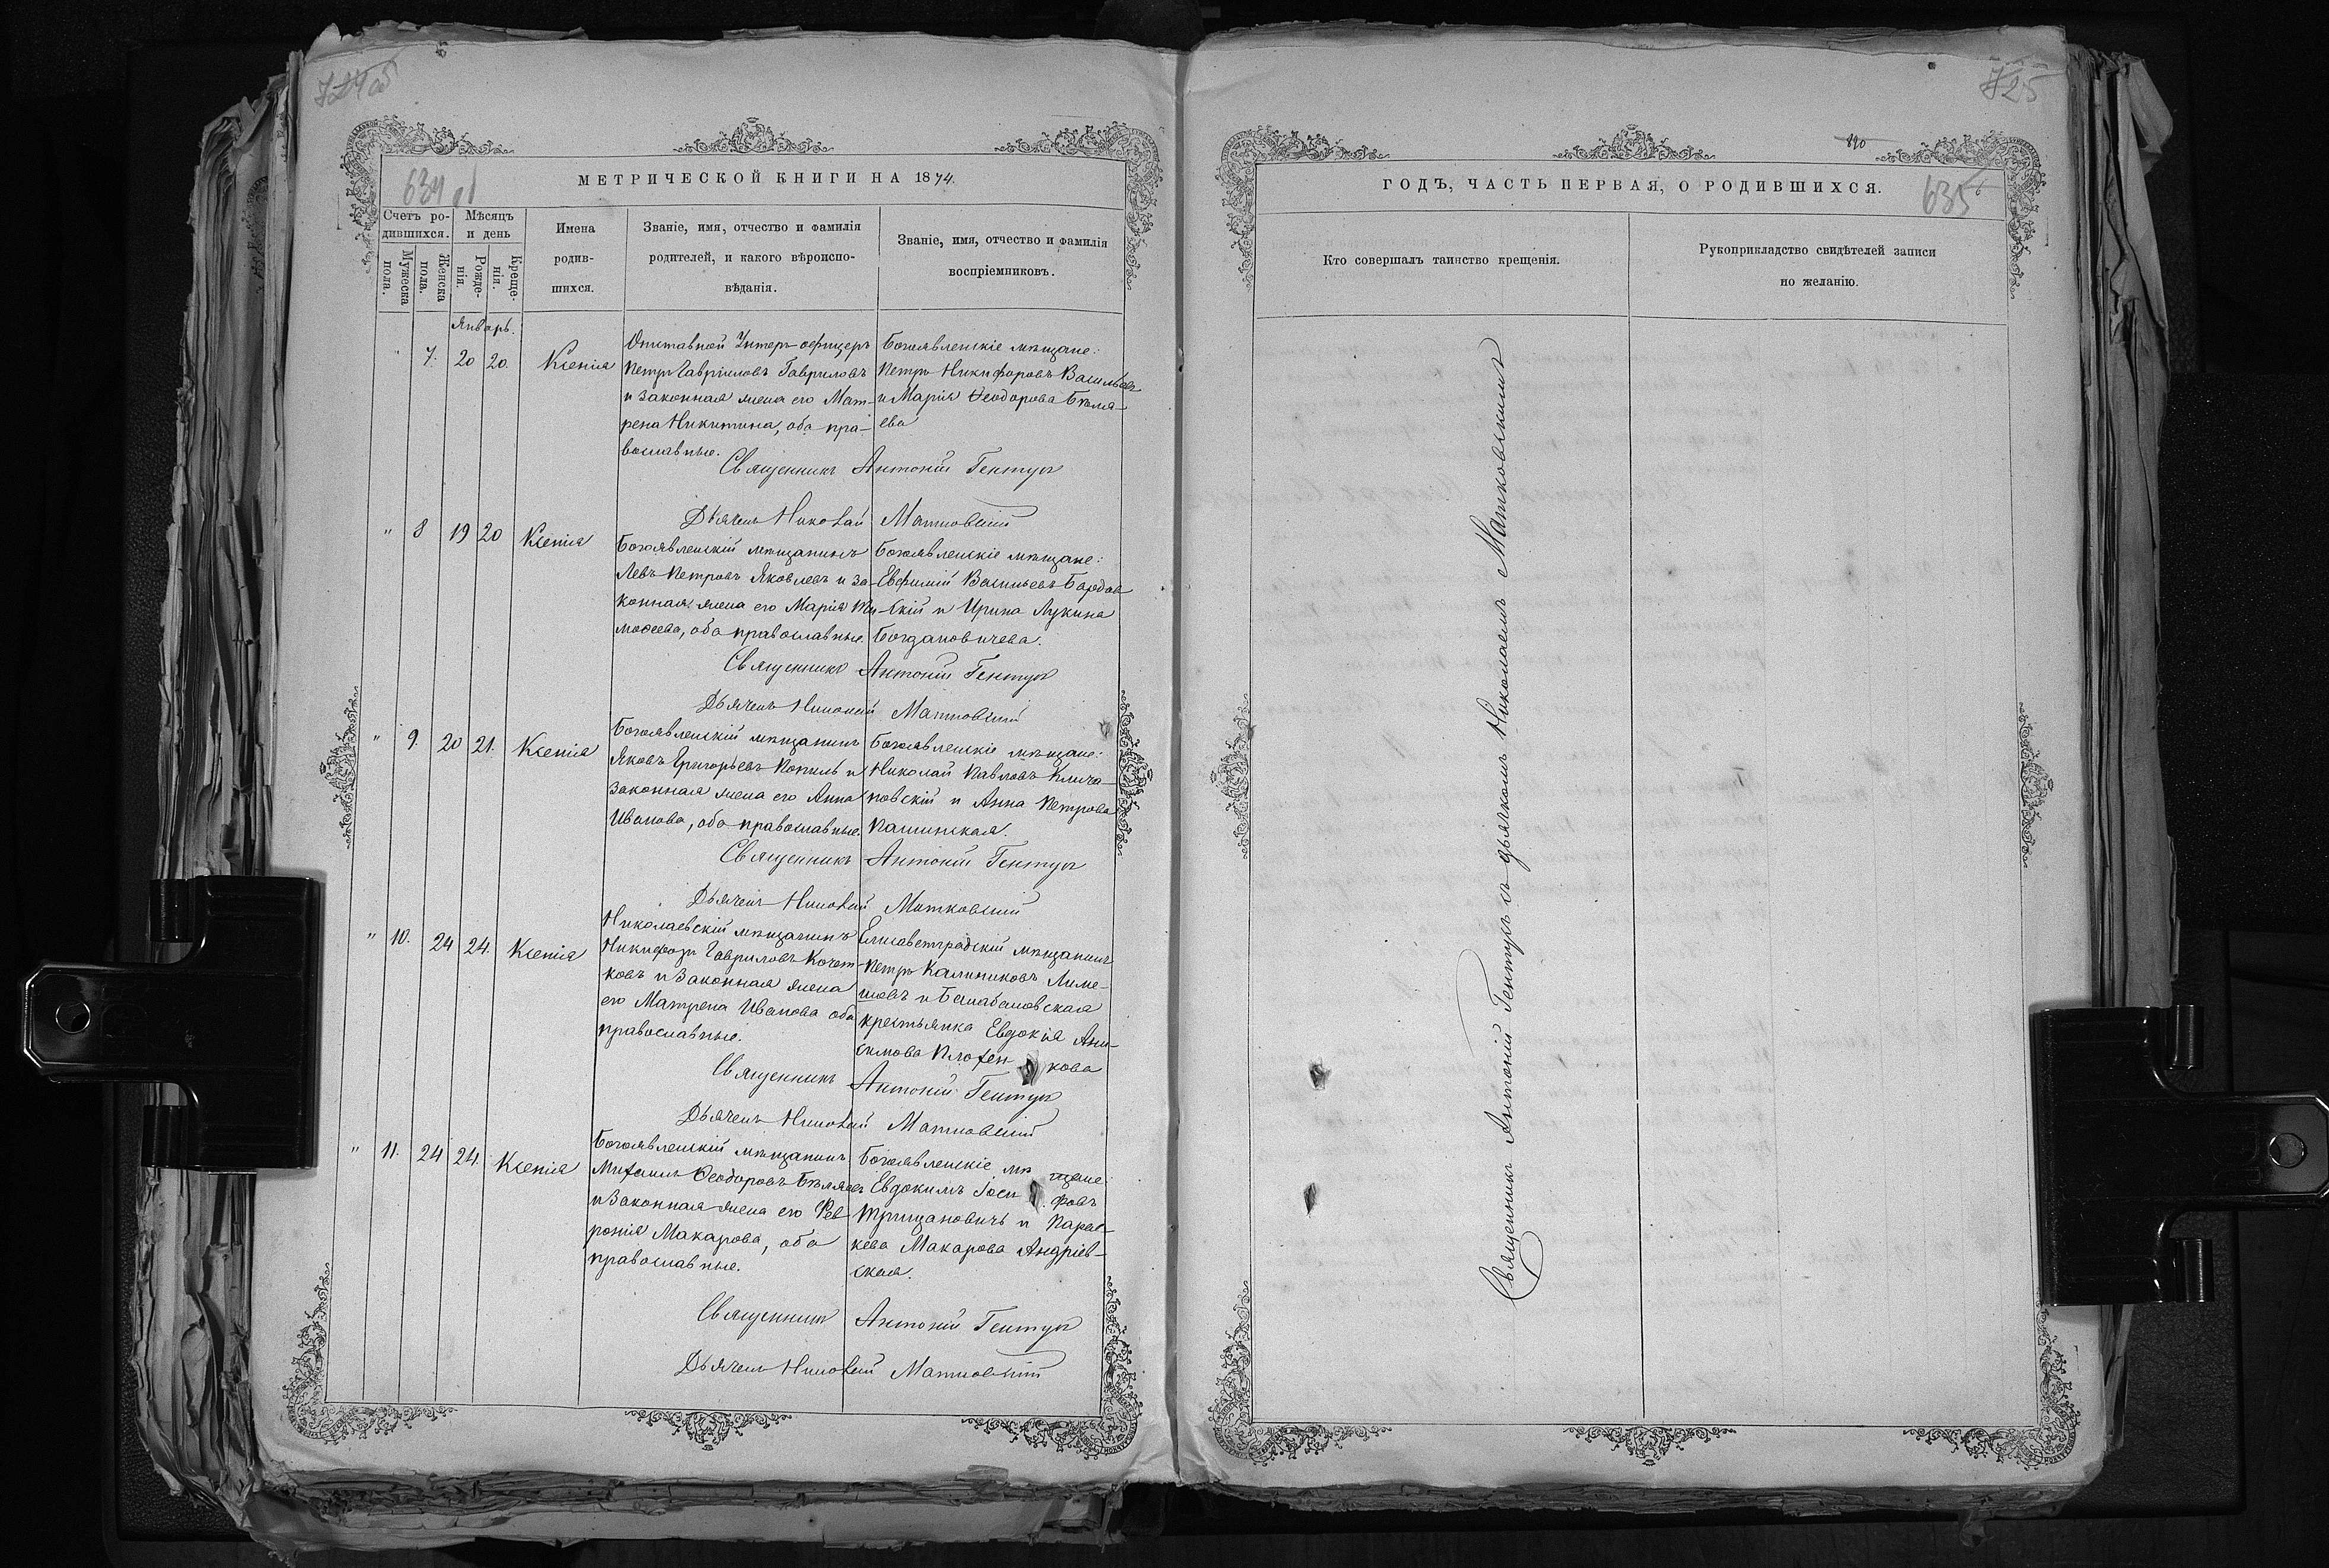 724 об
634 об
МЕТРИЧЕСКОЙ КНИГИ НА 1874.
Счетъ ро-
дившихся.
Мужеска
пола.
Женска
пола.
Мѣсяцъ
и день
Рожде-
нія.
Креще-
нія.
Имена
родив-
шихся.
Званіе, имя, отчество и фамилія
родителей, и какого вѣроиспо-
вѣданія.
Званіе, имя, отчество и фамилія
воспріемниковъ.
Январь.
" 7. 20 20. Ксенія
Отставной Унтеръ-офицеръ
Петръ Гавріиловъ Гавриловъ
и законная жена его Мат-
рена Никитина, оба пра-
вославные.
Богоявленскіе мѣщане:
Петръ Никифоровъ Васильевъ
и Марія Ѳеодорова Бѣля-
ева
Священникъ Антоній Гентуръ
Дьячекъ Николай Матковскій
" 8 19 20 Ксенія
Богоявленскій мѣщанинъ
Левъ Петровъ Яковлевъ и за-
конная жена его Марія Ти-
моѳеева, оба православные.
Богоявленскіе мѣщане:
Евфимій Васильевъ Бордов
скій и Ирина Лукина
Богдановичева.
Священникъ Антоній Гентуръ
Дьячекъ Николай Матковскій
" 9. 20 21. Ксенія
Богоявленскій мѣщанинъ
Яковъ Григорьевъ Копиль и
законная жена его Анна
Иванова, оба православные.
Богоявленскіе мѣщане:
Николай Павловъ
и Анна Петрова
Священникъ Антоній Гентуръ
Дьячекъ Николай Матковскій
" 10. 24 24. Ксенія
Николаевскій мѣщанинъ
Никифоръ Гавриловъ Кочет-
ковъ и законная жена
его Матрена Иванова оба
православные.
Елисаветградскій мѣщанинъ
Петръ Калиниковъ
и Балабановская
крестьянка Евдокія Ани-
симова
Священникъ Антоній Гентуръ
Дьячекъ Николай Матковскій
" 11. 24 24. Ксенія
Богоявленскій мѣщанинъ
Михаилъ Ѳеодоровъ Бѣляевъ
и законная жена его Фев
ронія Макарова, оба
православные.
Богоявленскіе мѣ щане:
Евдокимъ Іоси фовъ
Трицановичъ и Парас-
кева Макарова Андріев-
ская.
Священникъ Антоній Гентуръ
Дьячекъ Николай Матковскій
725
890
635
ГОДЪ, ЧАСТЬ ПЕРВАЯ, О РОДИВШИХСЯ.
Кто совершалъ таинство крещенія.
Рукоприкладство свидѣтелей записи
по желанію.
Священникъ Антоній Гентуръ съ дьячкомъ Николаемъ Матковскимъ